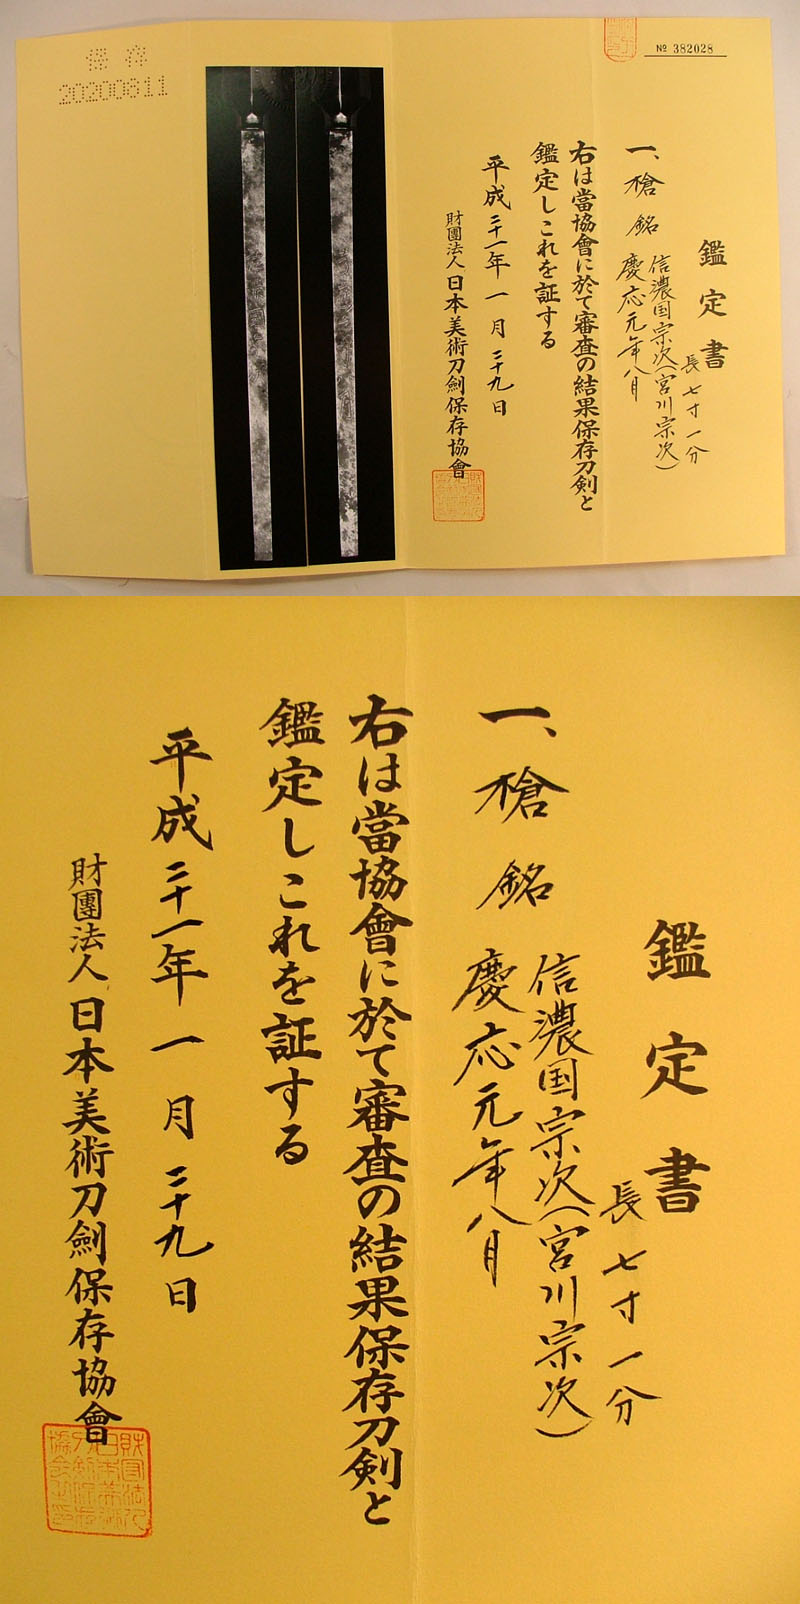 保存
20200811
№ 382028
鑑定書
長七寸一分
一、槍 銘 信濃国宗次(宮川宗次)
慶応元年八月
右は當協會に於て審査の結果保存刀剣と
鑑定しこれを証する
平成二十一年一月二十九日
財團法人日本美術刀劍保存協會
鑑定書
長七寸一分
一、槍 銘 信濃国宗次(宮川宗次)
慶応元年八月
右は當協會に於て審査の結果保存刀剣と
鑑定しこれを証する
平成二十一年一月二十九日
財團法人日本美術刀劍保存協會